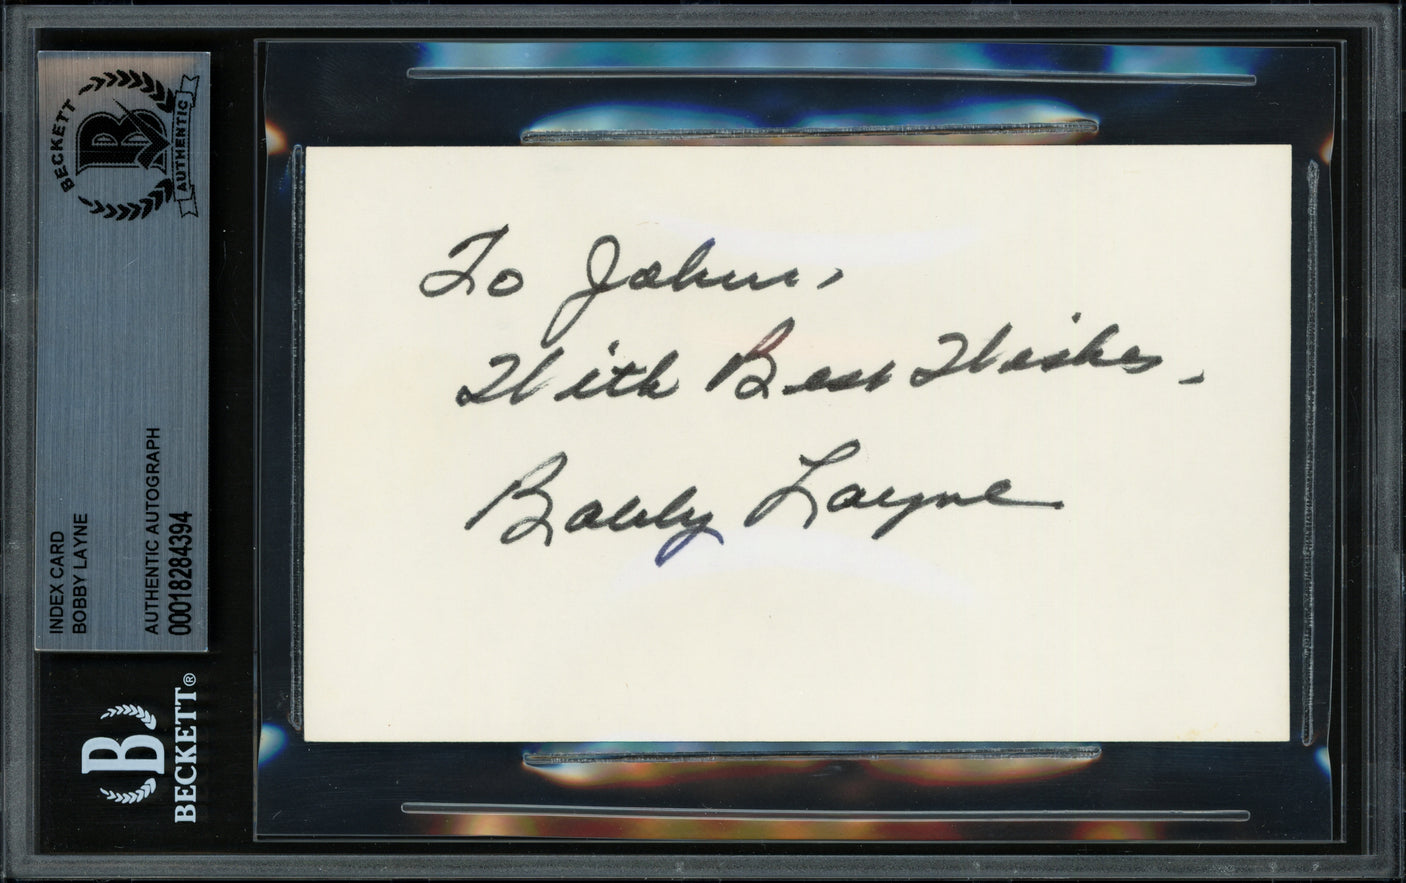 BECKETT
B
AUTHENTIC
INDEX CARD
BOBBY LAYNE
AUTHENTIC AUTOGRAPH
00018284394
B
BECKETT®
To John,
With Best Wishes.
Bobby Layne